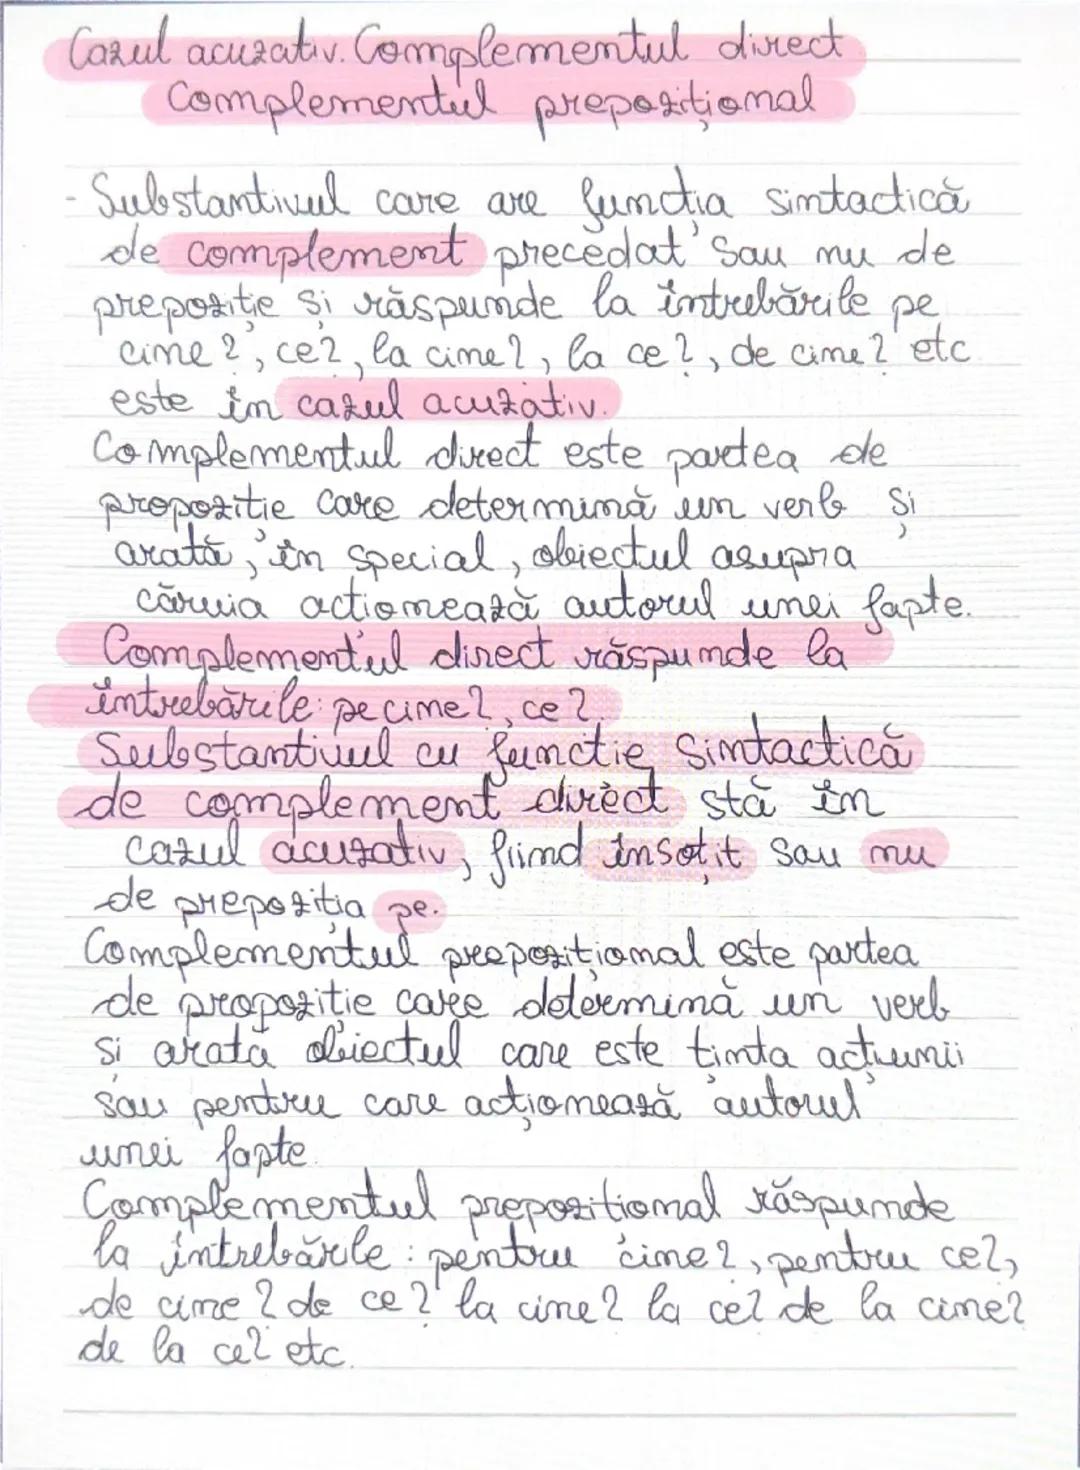 Cazul acuzativ. Complementul direct
Complementul prepozițional
- Substantivul care are funcția sintactică
de complement precedat sau nu de
prepoziție și răspunde la întrebările pe
cine?, ce?, la cine?, la ce?, de cine? etc
este în cazul acuzativ.
Complementul direct este partea de
propoziție care determină un verb și
arată, în special, obiectul asupra
căruia acționează autorul unei fapte.
Complementul direct răspunde la
întrebările: pe cine?, ce?.
Substantivul cu funcție sintactică
de complement direct stă în
cazul acuzativ, fiind însoțit sau nu
de prepoziția pe.
Complementul prepozițional este partea
de propoziție care determină un verb
și arată obiectul care este ținta acțiunii
sau pentru care acționează autorul
unei fapte.
Complementul prepozițional răspunde
la întrebările: pentru cine?, pentru ce?,
de cine? de ce? la cine? la ce? de la cine?
de la ce? etc.